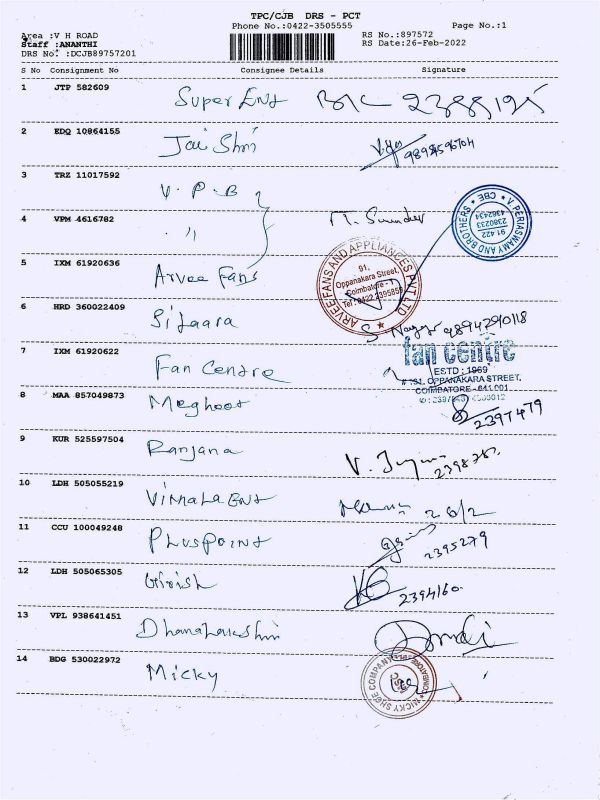 TPC/CJB DRS - PCT
Phone No.:0422-3505555 Page No.:1
Area :V H ROAD RS No.:897572
Staff :ANANTHI RS Date:26-Feb-2022
DRS No. :DCJB89757201
S No Consignment No Consignee Details Signature
1 JTP 582609 Super Ent
2 EDQ 10864155 Jai Shri
3 TRZ 11017592 V.P.B
4 VPM 4616782 " M. Sunder
V. PERIASWAMY AND BROTHERS * CBE *
91 422
2380233
4382434
5 IXM 61920636 Arvee Fans
ARVEE FANS AND APPLIANCES PVT LTD
91,
Oppanakara Street,
Coimbatore - 1
Tel : 0422 2395858
6 HRD 360022409 Sitaara 9894290118
7 IXM 61920622 Fan Centre
fan centre
ESTD : 1969
# 191, OPPANAKARA STREET,
COIMBATORE - 641 001.
8 MAA 857049873 Meghoot 2397479
9 KUR 525597504 Ranjana V.
10 LDH 505055219 Vimala Ent 26/2
11 CCU 100049248 Pluspoint 2395279
12 LDH 505065305 Girish 2394160
13 VPL 938641451 Dhanalakshmi
14 BDG 530022972 Micky
MICKY SHOE COMPANY